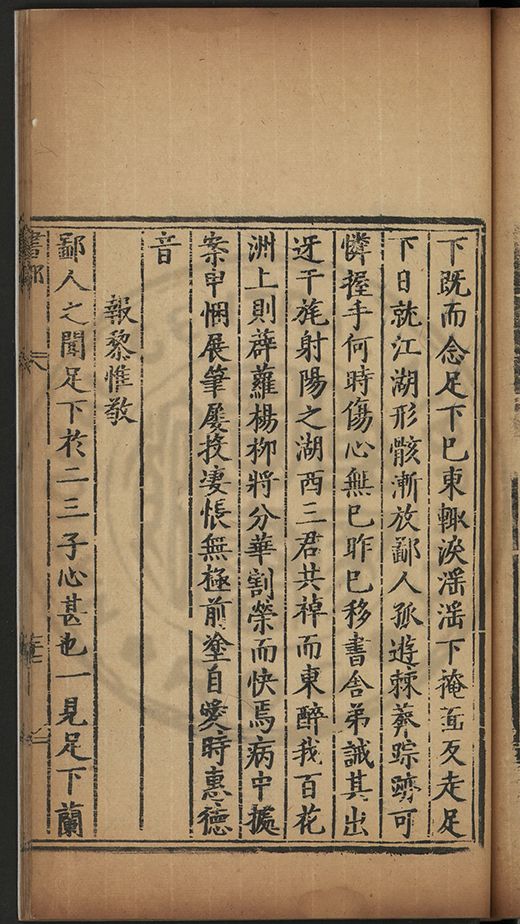 下既而念足下已東輒淚滛滛下掩面反走足
下日就江湖形骸漸放鄙人孤遊棘莽踪跡可
憐握手何時傷心無已昨已移書舍弟誡其出
迓干旄射陽之湖西三君共棹而東醉我百花
洲上則薜蘿楊柳將分華割榮而快焉病中據
案申悃展筆屡投凄悵無極前塗自愛時惠德
音
報黎惟敬
鄙人之聞足下於二三子心甚也一見足下蘭